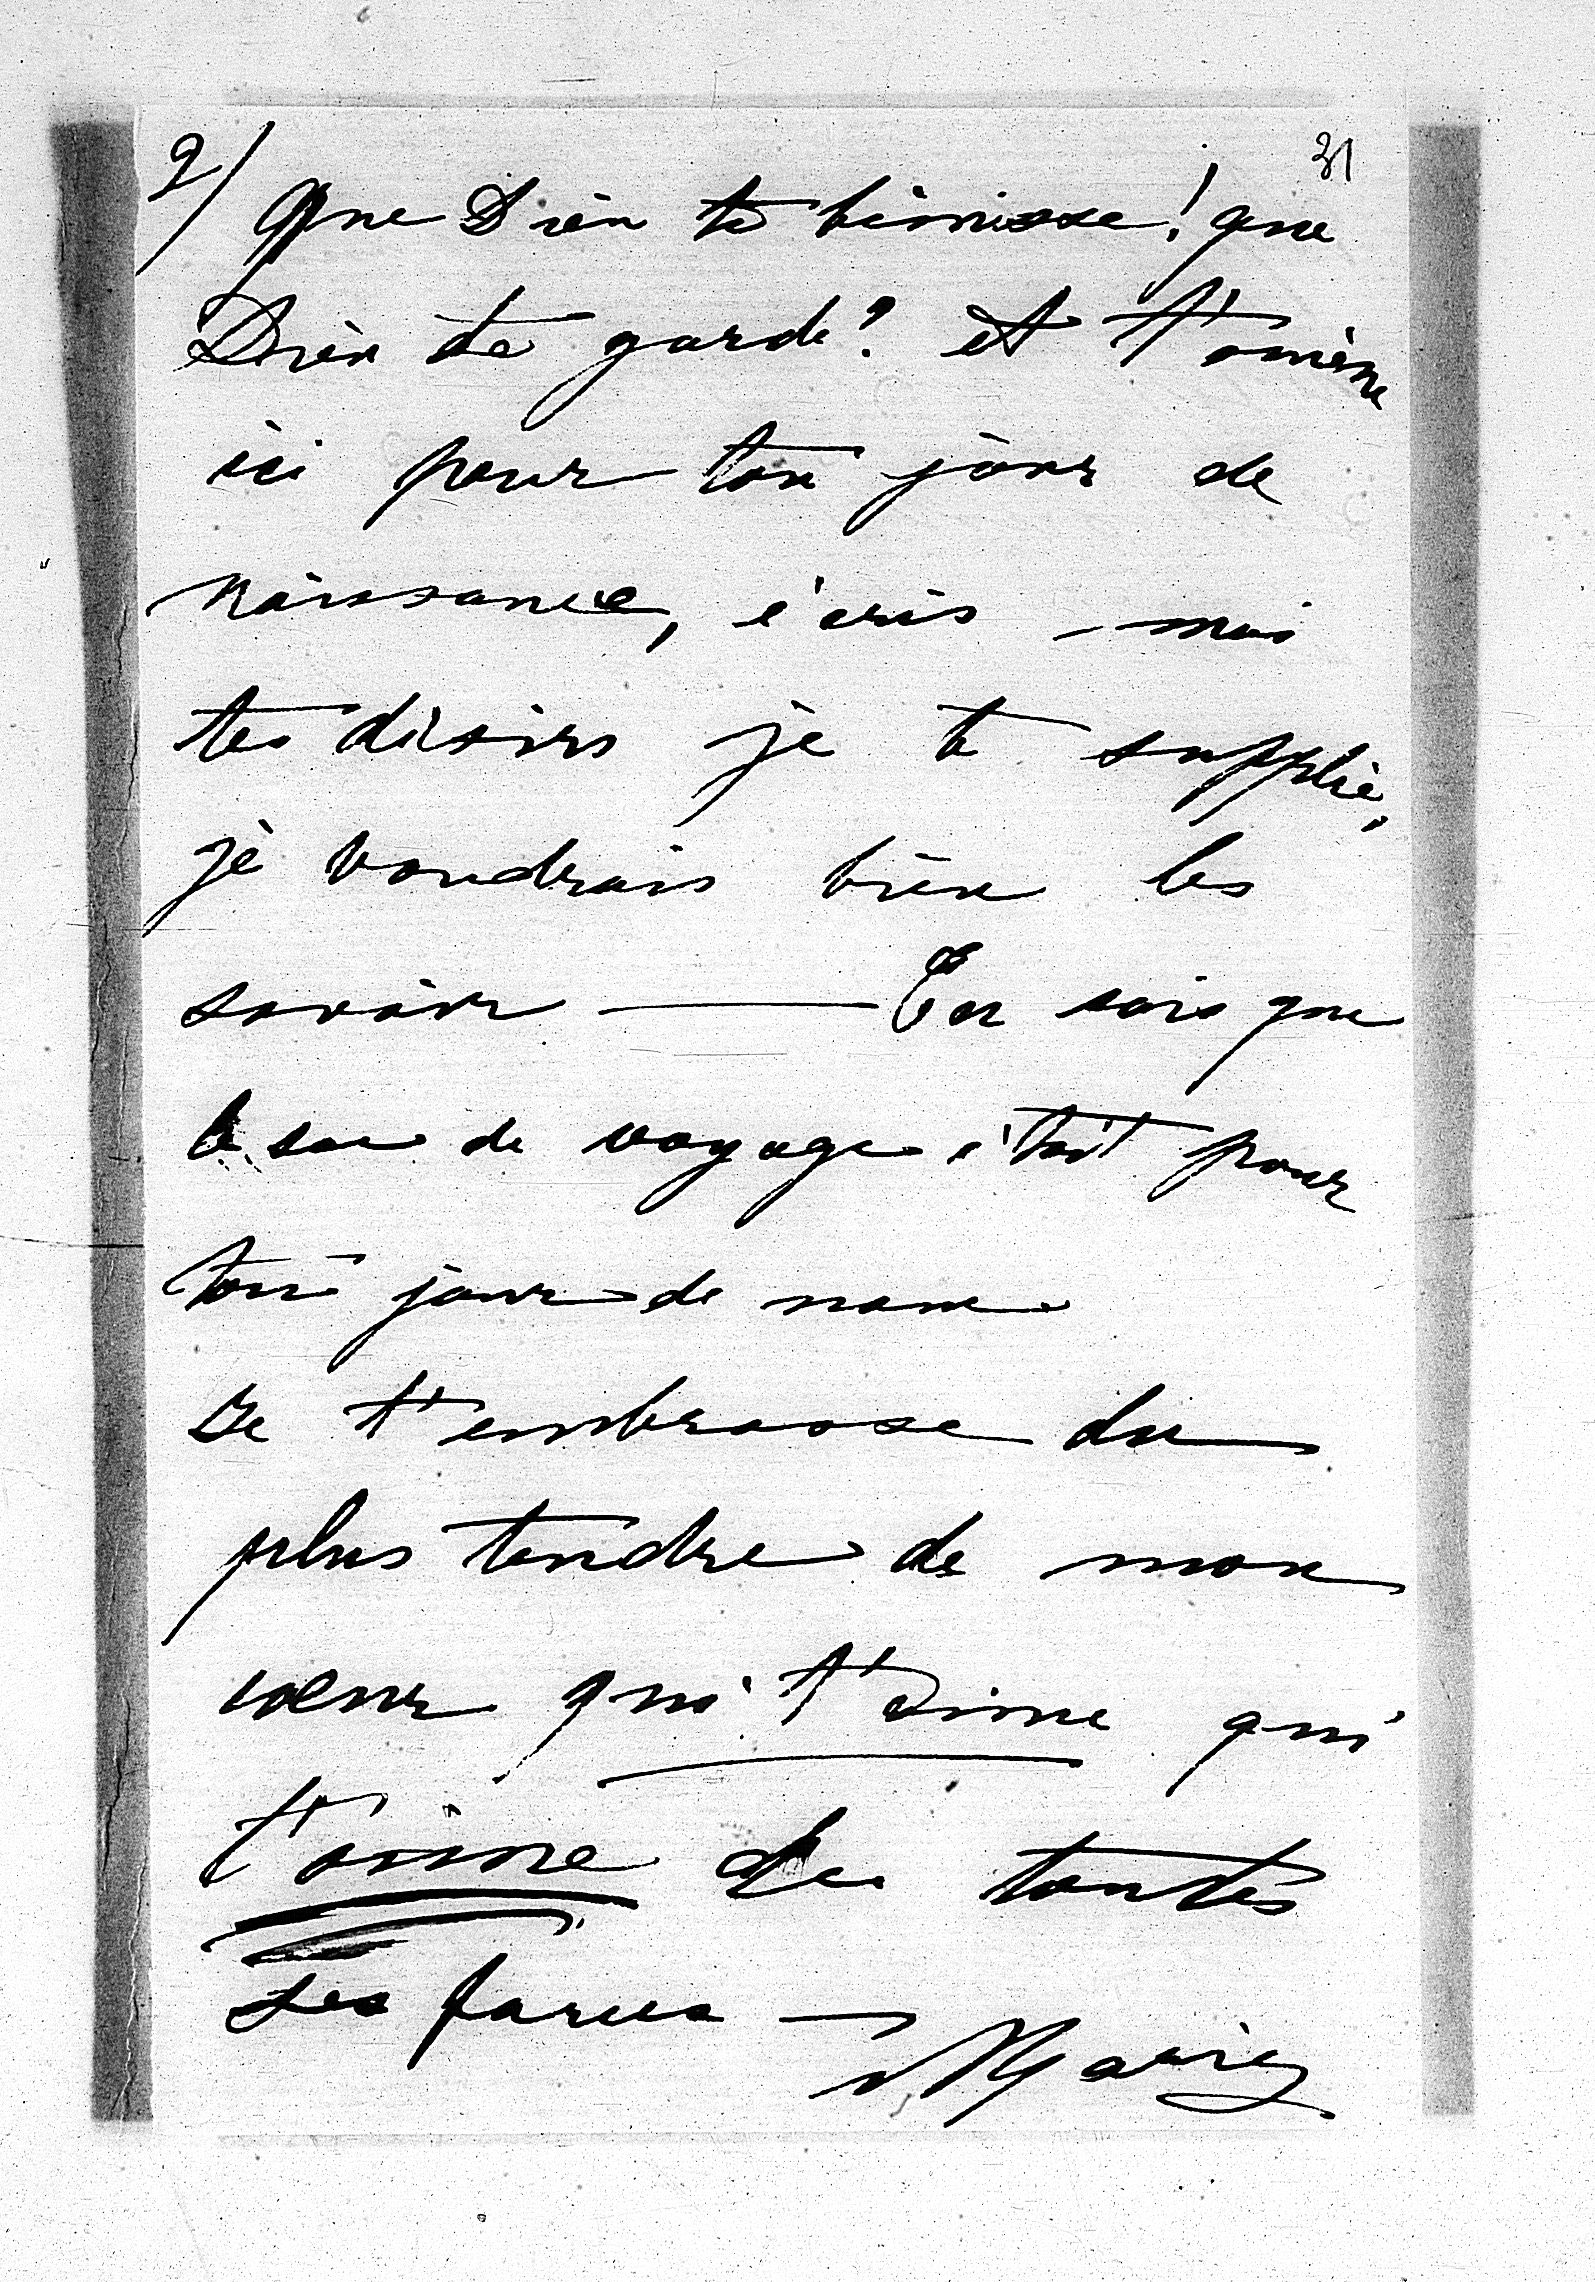 2/ 31
Que Dieu te bénisse! que
Dieu te garde! et t'amène
ici pour ton jour de
naissance, écris-moi
tes désirs je te supplie,
je voudrais bien les
savoir — Tu sais que
le sac de voyage était pour
ton jour de nom
Je t'embrasse du
plus tendre de mon
cœur qui t'aime qui
t'aime de toutes
ses forces —
Marie